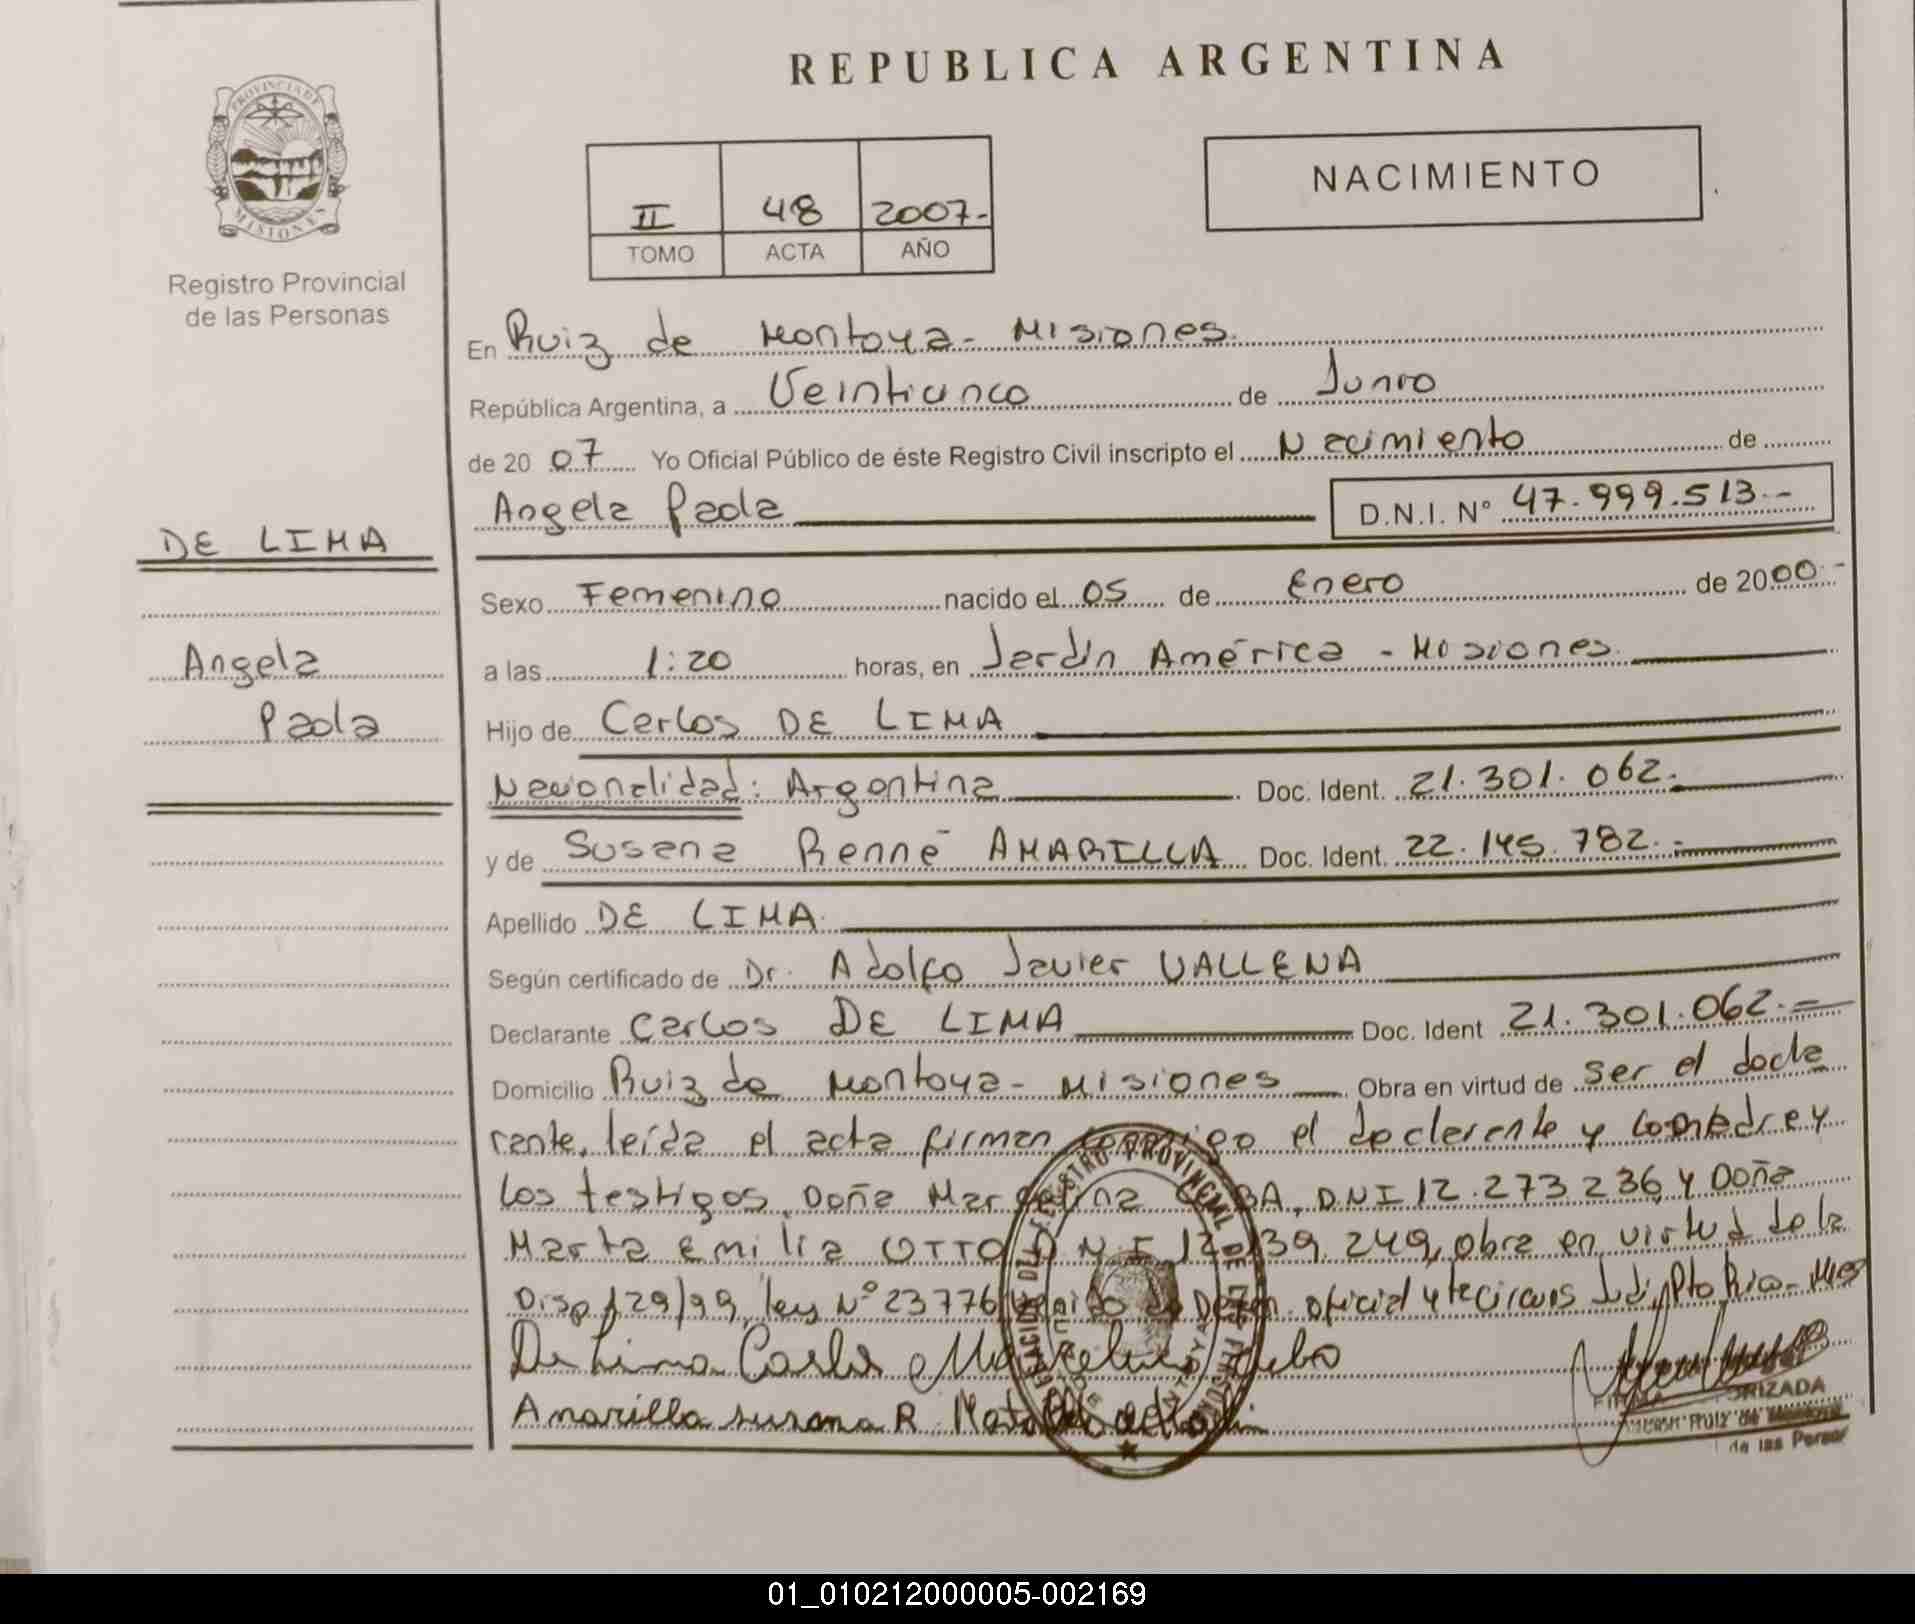 REPUBLICA ARGENTINA
PROVINCIA DE MISIONES
Registro Provincial
de las Personas
II 48 2007-
TOMO ACTA AÑO
NACIMIENTO
En Ruiz de Montoya - Misiones.
República Argentina, a Veinticinco de Junio
de 20 07 Yo Oficial Público de éste Registro Civil inscripto el Nacimiento de
Angela Paola D.N.I. Nº 47.999.513.-
DE LIMA
Angela
Paola
Sexo Femenino nacido el 05 de Enero de 2000.-
a las 1:20 horas, en Jardín América - Misiones.
Hijo de Carlos DE LIMA
Nacionalidad: Argentina Doc. Ident. 21.301.062.-
y de Susana Renné AMARILLA Doc. Ident. 22.145.782.-
Apellido DE LIMA.
Según certificado de Dr. Adolfo Javier VALLENA
Declarante Carlos DE LIMA Doc. Ident 21.301.062.-
Domicilio Ruiz de Montoya - Misiones Obra en virtud de ser el decla
rante, leída el acta firman conmigo el declarante y la madre y
los testigos Doña DNI 12.273.236, y Doña
Marta Emilia OTTO D.N.I. 249, obra en virtud de la
Disp 129/99, ley Nº 23776 oficial
De Lima Carlos
Amarilla susana R.
REGISTRO PROVINCIAL DE LAS PERSONAS
01_010212000005-002169